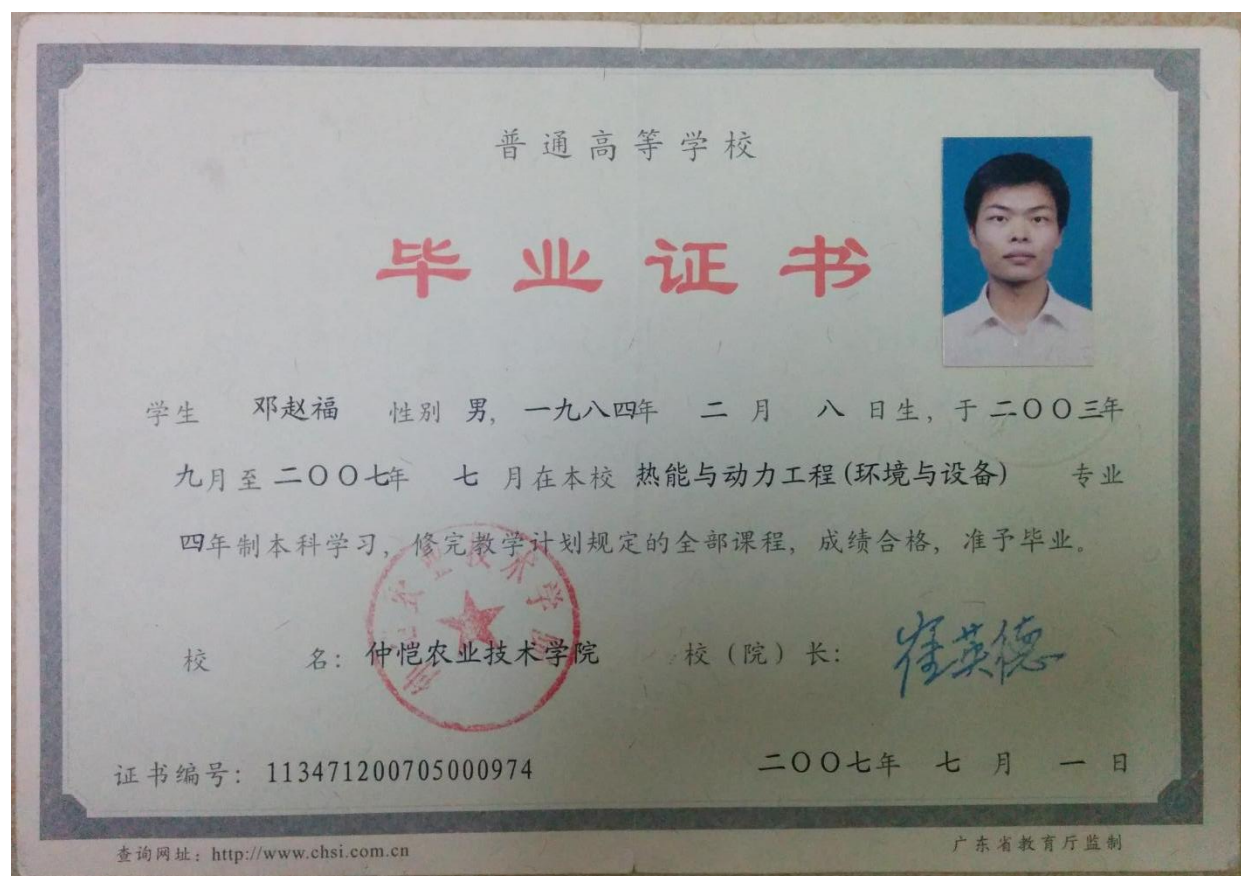 普通高等学校
毕业证书
学生 邓赵福 性别 男, 一九八四年 二 月 八 日生, 于 二〇〇三年
九月至 二〇〇七年 七 月在本校 热能与动力工程(环境与设备) 专业
四年制本科学习, 修完教学计划规定的全部课程, 成绩合格, 准予毕业。
仲恺农业技术学院
校 名: 仲恺农业技术学院 校(院)长: 崔英德
证书编号: 113471200705000974 二〇〇七年 七 月 一 日
查询网址: http://www.chsi.com.cn 广东省教育厅监制